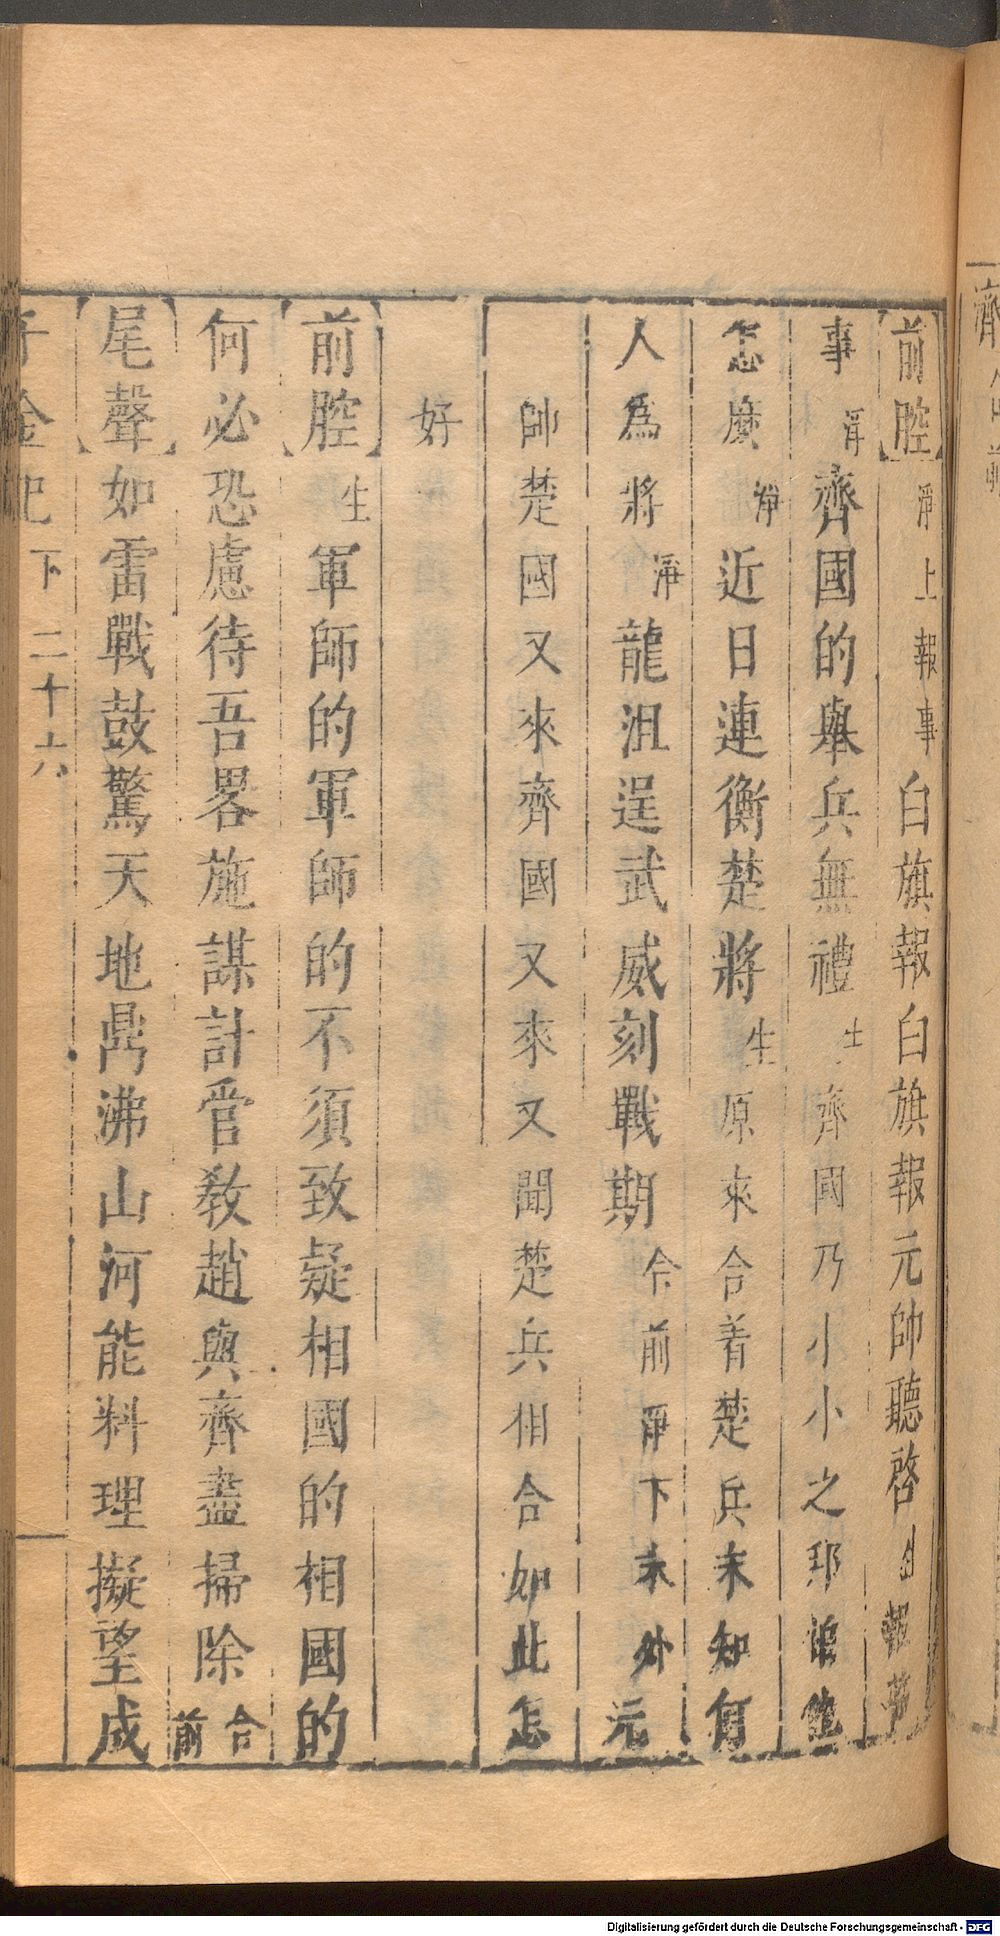 【前腔】淨上報事白旗報白旗報元帥聽啓生報甚
事淨齊國的舉兵無禮生齊國乃小小之邦怕他
怎麼淨近日連衡楚將生原來合着楚兵未知何
人爲將淨龍沮逞武威刻戰期合前淨下末外元
帥楚國又來齊國又來又聞楚兵相合如此怎
好
【前腔】生軍師的軍師的不須致疑相國的相國的
何必恐慮待吾畧施謀計管教趙與齊盡掃除合前
【尾聲】如雷戰鼓驚天地鼎沸山河能料理擬望成
千金記 下 二十六
Digitalisierung gefördert durch die Deutsche Forschungsgemeinschaft - DFG